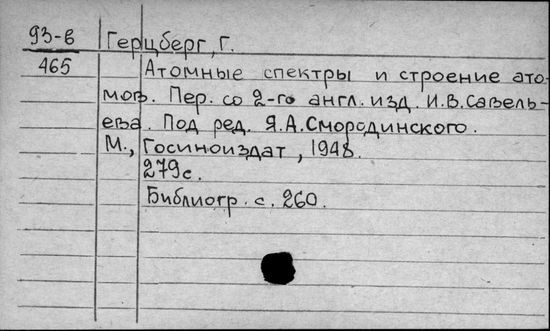 93-в Герцберг, Г.
465 Атомные спектры и строение ато-
мов. Пер. со 2-го англ. изд. И.В. Савель-
ева. Под ред. Я.А. Смородинского.
М., Госиноиздат, 1948.
279с.
Библиогр. с. 260.